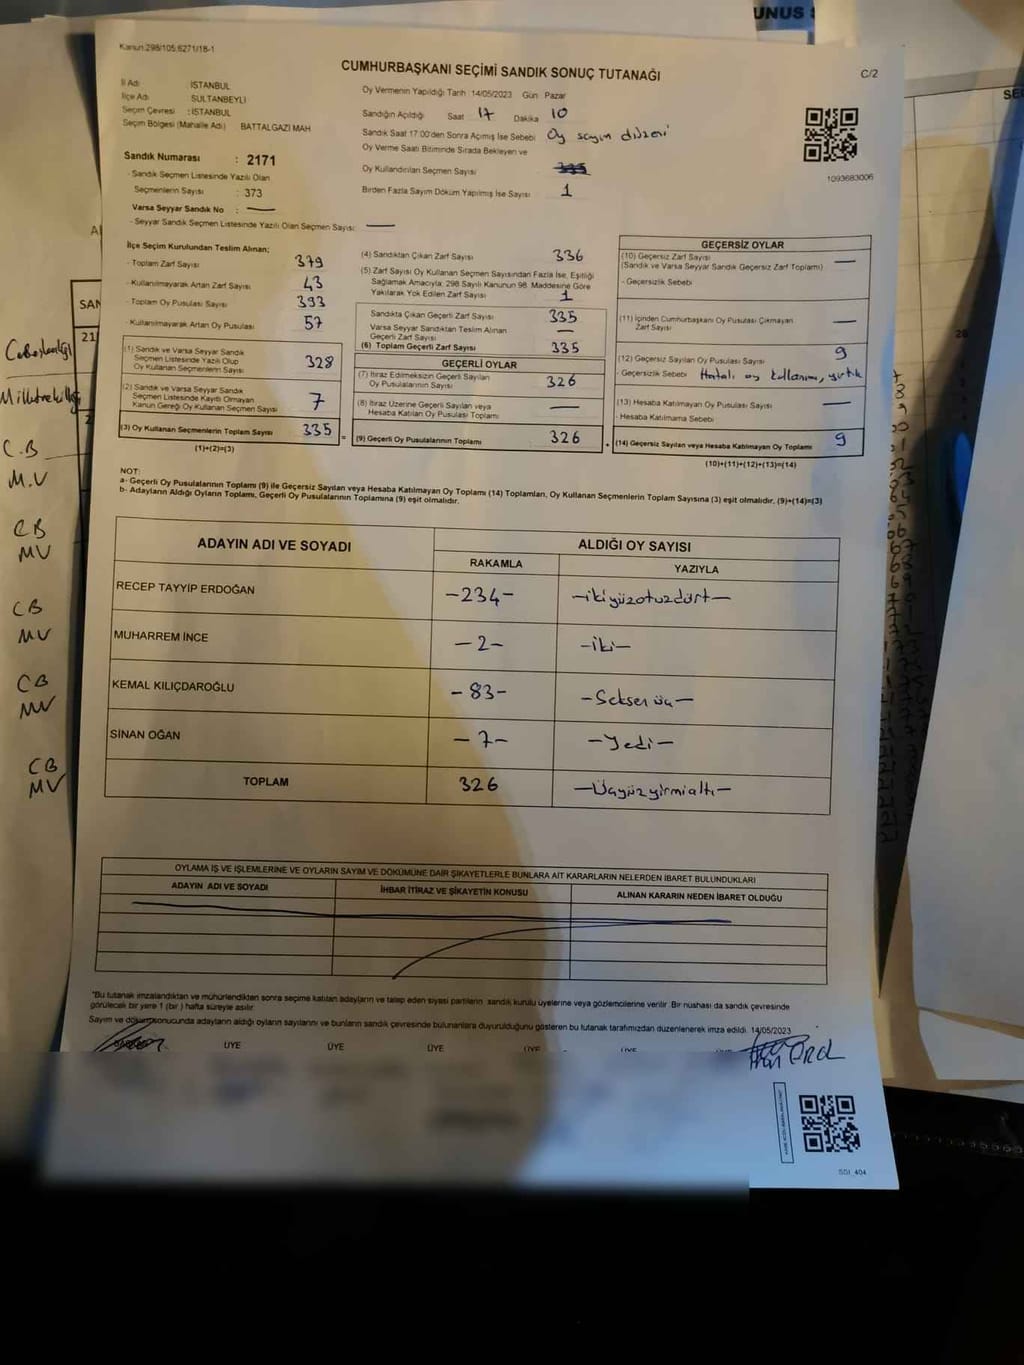 UNUS
Kanun:298/105,6271/18-1
CUMHURBAŞKANI SEÇİMİ SANDIK SONUÇ TUTANAĞI
C/2
İl Adı : İSTANBUL
İlçe Adı : SULTANBEYLİ
Seçim Çevresi : İSTANBUL
Seçim Bölgesi (Mahalle Adı) : BATTALGAZİ MAH
Sandık Numarası : 2171
- Sandık Seçmen Listesinde Yazılı Olan
Seçmenlerin Sayısı : 373
Varsa Seyyar Sandık No : —
- Seyyar Sandık Seçmen Listesinde Yazılı Olan Seçmen Sayısı: —
Oy Vermenin Yapıldığı Tarih :14/05/2023 Gün Pazar
Sandığın Açıldığı Saat 17 Dakika 10
Sandık Saat 17:00'den Sonra Açımış İse Sebebi Oy sayım düzeni
Oy Verme Saati Bitiminde Sırada Bekleyen ve
Oy Kullandırılan Seçmen Sayısı
Birden Fazla Sayım Döküm Yapılmış İse Sayısı 1
1093683006
İlçe Seçim Kurulundan Teslim Alınan:
- Toplam Zarf Sayısı 379
- Kullanılmayarak Artan Zarf Sayısı 43
- Toplam Oy Pusulası Sayısı 393
- Kullanılmayarak Artan Oy Pusulası 57
(1) Sandık ve Varsa Seyyar Sandık
Seçmen Listesinde Yazılı Olup
Oy Kullanan Seçmenlerin Sayısı 328
(2) Sandık ve Varsa Seyyar Sandık
Seçmen Listesinde Kayıtlı Olmayan
Kanun Gereği Oy Kullanan Seçmen Sayısı 7
(3) Oy Kullanan Seçmenlerin Toplam Sayısı 335
(1)+(2)=(3)
(4) Sandıktan Çıkan Zarf Sayısı 336
(5) Zarf Sayısı Oy Kullanan Seçmen Sayısından Fazla İse, Eşitliği
Sağlamak Amacıyla; 298 Sayılı Kanunun 98. Maddesine Göre
Yakılarak Yok Edilen Zarf Sayısı 1
Sandıkta Çıkan Geçerli Zarf Sayısı 335
Varsa Seyyar Sandıktan Teslim Alınan
Geçerli Zarf Sayısı —
(6) Toplam Geçerli Zarf Sayısı 335
GEÇERLİ OYLAR
(7) İtiraz Edilmeksizin Geçerli Sayılan
Oy Pusulalarının Sayısı 326
(8) İtiraz Üzerine Geçerli Sayılan veya
Hesaba Katılan Oy Pusulası Toplamı —
= (9) Geçerli Oy Pusulalarının Toplamı 326
GEÇERSİZ OYLAR
(10) Geçersiz Zarf Sayısı
(Sandık ve Varsa Seyyar Sandık Geçersiz Zarf Toplamı) —
- Geçersizlik Sebebi
(11) İçinden Cumhurbaşkanı Oy Pusulası Çıkmayan
Zarf Sayısı —
(12) Geçersiz Sayılan Oy Pusulası Sayısı 9
- Geçersizlik Sebebi Hatalı oy kullanımı, yırtık
(13) Hesaba Katılmayan Oy Pusulası Sayısı —
- Hesaba Katılmama Sebebi
+ (14) Geçersiz Sayılan veya Hesaba Katılmayan Oy Toplamı 9
(10)+(11)+(12)+(13)=(14)
NOT:
a- Geçerli Oy Pusulalarının Toplamı (9) ile Geçersiz Sayılan veya Hesaba Katılmayan Oy Toplamı (14) Toplamları, Oy Kullanan Seçmenlerin Toplam Sayısına (3) eşit olmalıdır, (9)+(14)=(3)
b- Adayların Aldığı Oyların Toplamı, Geçerli Oy Pusulalarının Toplamına (9) eşit olmalıdır.
ADAYIN ADI VE SOYADI
ALDIĞI OY SAYISI
RAKAMLA YAZIYLA
RECEP TAYYİP ERDOĞAN -234- -ikiyüzotuzdört-
MUHARREM İNCE -2- -iki-
KEMAL KILIÇDAROĞLU -83- -Seksen üç-
SİNAN OĞAN -7- -Yedi-
TOPLAM 326 -Üçyüzyirmialtı-
OYLAMA İŞ VE İŞLEMLERİNE VE OYLARIN SAYIM VE DÖKÜMÜNE DAİR ŞİKAYETLERLE BUNLARA AİT KARARLARIN NELERDEN İBARET BULUNDUKLARI
ADAYIN ADI VE SOYADI İHBAR İTİRAZ VE ŞİKAYETİN KONUSU ALINAN KARARIN NEDEN İBARET OLDUĞU
"Bu tutanak imzalandıktan ve mühürlendikten sonra seçime katılan adayların ve talep eden siyasi partilerin sandık kurulu üyelerine veya gözlemcilerine verilir. Bir nüshası da sandık çevresinde
görülecek bir yere 1 (bir ) hafta süreyle asılır.
Sayım ve döküm sonucunda adayların aldığı oyların sayılarını ve bunların sandık çevresinde bulunanlara duyurulduğunu gösteren bu tutanak tarafımızdan düzenlenerek imza edildi. 14/05/2023 "
ÜYE ÜYE ÜYE ÜYE ÜYE
SDI_404
SAN
21
Milletvekilliği
C.B
M.V
CB
MV
CB
MV
CB
MV
CB
MV